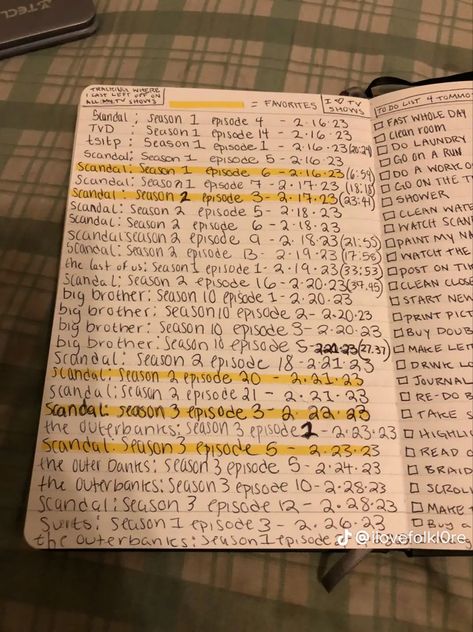 TECL
TRACKING WHERE
I LAST LEFT OFF ON
ALL MY TV SHOWS
= FAVORITES
I ♥ TV
SHOWS
Scandal: Season 1 episode 4 - 2.16.23
TVD : Season 1 episode 14 - 2.16.23
tsitp : Season 1 episode 1 - 2.16.23
Scandal: Season 1 episode 5 - 2.16.23
Scandal: Season 1 episode 6 - 2.16.23 (6:59)
Scandal: Season 1 episode 7 - 2.17.23 (18:18)
Scandal: Season 2 episode 3 - 2.17.23 (23:41)
Scandal: Season 2 episode 5 - 2.18.23
Scandal: Season 2 episode 6 - 2.18.23
Scandal: Season 2 episode 9 - 2.18.23 (21:55)
Scandal: Season 2 episode 13 - 2.19.23 (17:58)
the last of us: Season 1 episode 1 - 2.19.23 (33:53)
Scandal: Season 2 episode 16 - 2.20.23 (37:45)
big brother: Season 10 episode 1 - 2.20.23
big brother: Season 10 episode 2 - 2.20.23
big brother: Season 10 episode 3 - 2.20.23
big brother: Season 10 episode 5 - 2.21.23 (27:37)
Scandal: Season 2 episode 18 - 2.21.23
Scandal: Season 2 episode 20 - 2.21.23
Scandal: Season 2 episode 21 - 2.21.23
Scandal: Season 3 episode 3 - 2.22.23
the outerbanks: Season 3 episode 1 - 2.23.23
Scandal: Season 3 episode 5 - 2.23.23
the outer banks: Season 3 episode 5 - 2.24.23
the outerbanks: Season 3 episode 10 - 2.28.23
Scandal: Season 3 episode 12 - 2.28.23
Suits: Season 1 episode 3 - 2.26.23
the outerbanks: Season 1 episode
TO DO LIST 4 TOMMO
FAST WHOLE DAY
Clean room
DO LAUNDRY
GO ON A RUN
DO A WORK O
GO ON THE T
SHOWER
CLEAN WATE
WATCH SCAN
PAINT MY NA
WATCH THE
POST ON TI
CLEAN CLOSE
START NEW
PRINT PIC
BUY DOUB
MAKE LE
DRINK LO
JOURNAL
RE-DO B
TAKE
HIGHLI
READ
BRAID
SCROLL
MAKE
BUY
@ilovefolkl0re